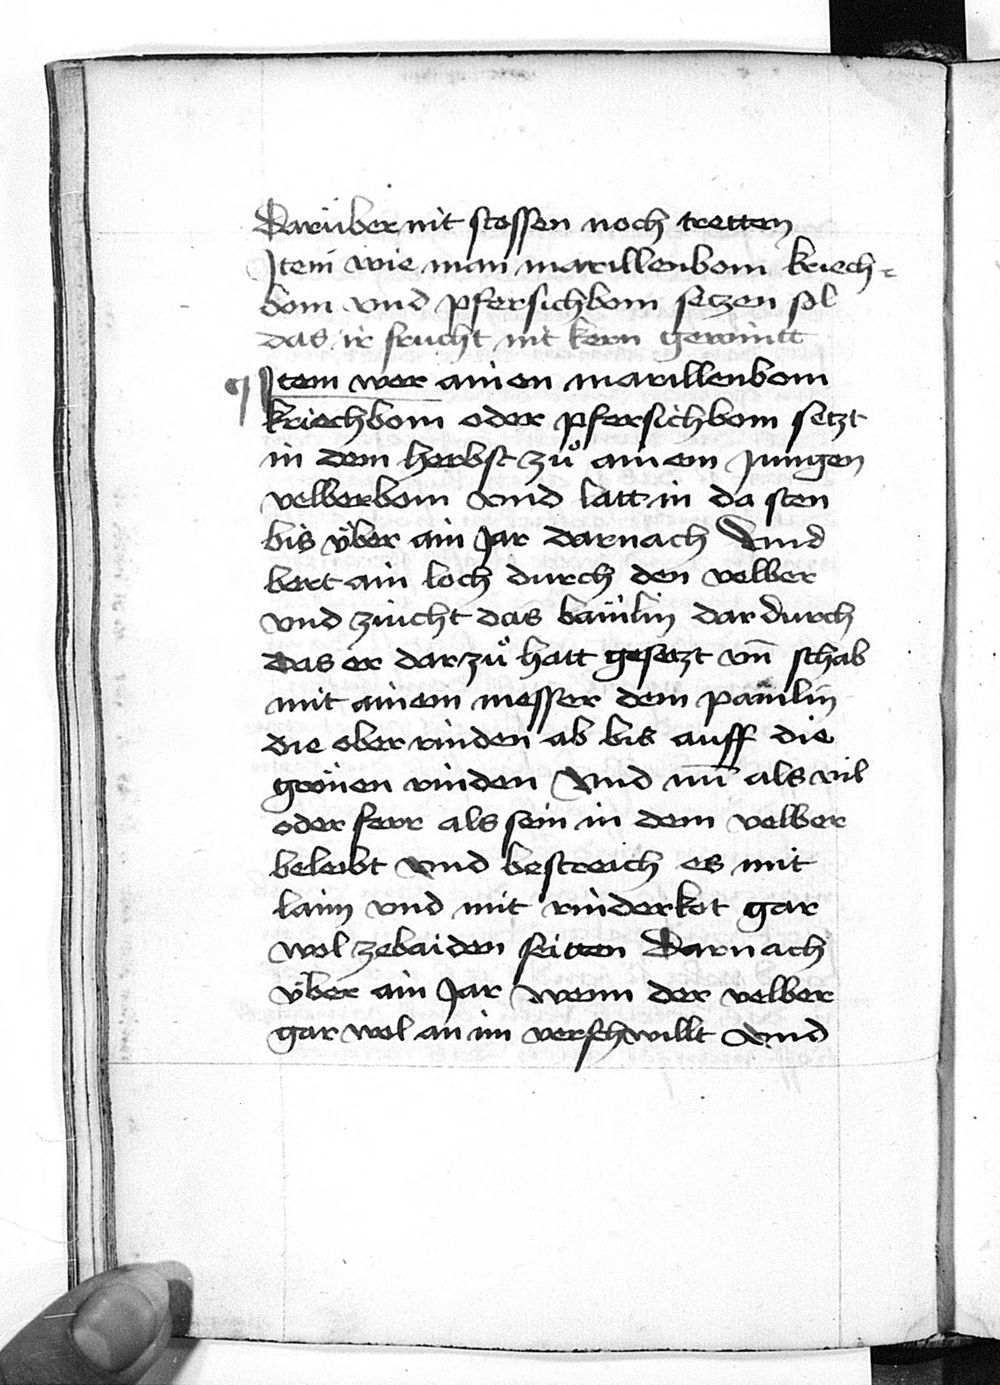 Darüber nit stossen noch tretten
Item wie man marillenbom kriech-
bom vnd pfersichbom setzen sol
das ir frucht nit kern gewintt
¶ Item wer ainen marillenbom
kriechbom oder pfersichbom setzt
in dem herbst zuͦ ainem Jungen
velberbom vnd latt in da sten
bis v̈ber ain Jar darnach Vnd
bert ain loch durch den velber
vnd zeicht das baümlin dar durch
das er darzuͦ hatt gesetzt vn̄ schab
mit ainem messer dem paümlin
die ober rinden ab bis auff die
gröuen rinden Vnd nu̅ als vil
oder ferr als sein in dem velber
beleibt vnd bestreich es mit
laim vnd mit rinderkot gar
wol zebaiden seitten Darnach
v̈ber ain Jar wenn der velber
gar wol an im verschwillt vnd